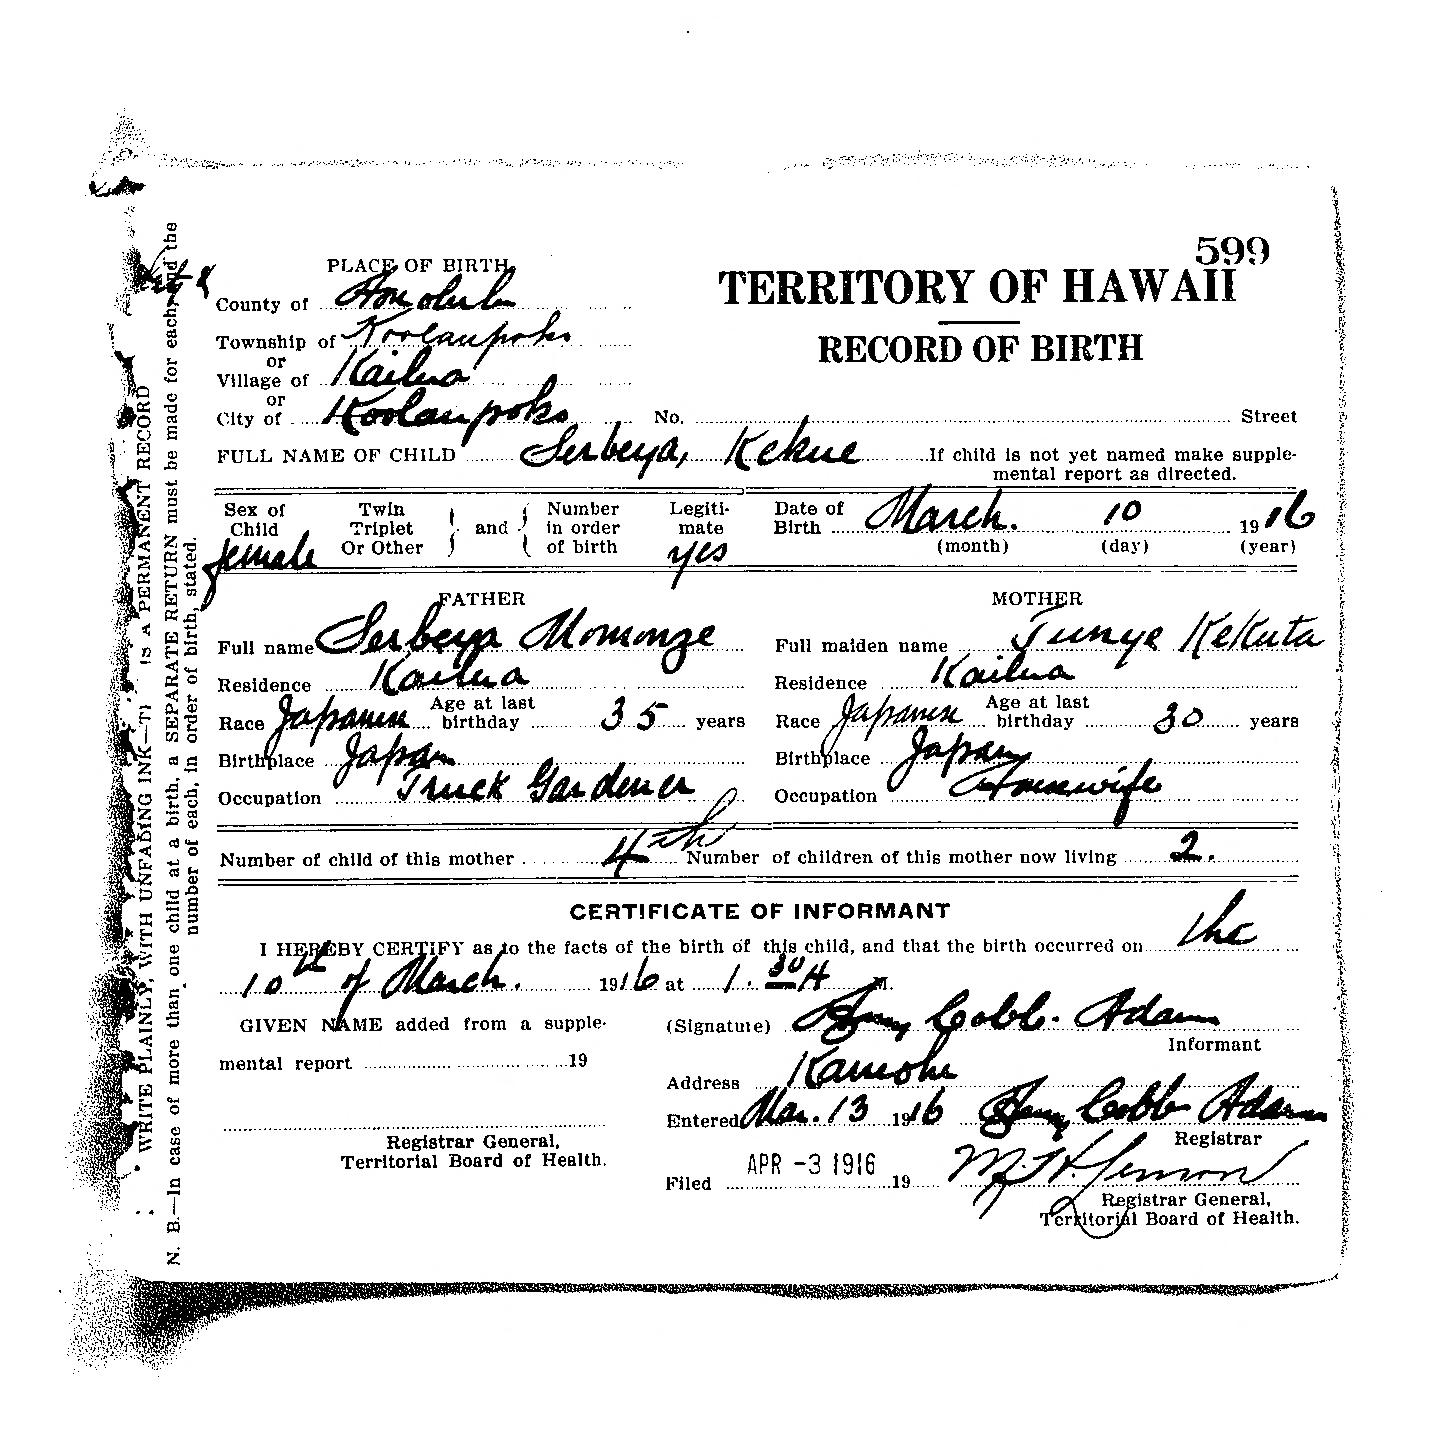 599
TERRITORY OF HAWAII
RECORD OF BIRTH
PLACE OF BIRTH
County of Honolulu
Township of Koolaupoko
or
Village of Kailua
or
City of Koolaupoko No. Street
FULL NAME OF CHILD Serbeya, Kekue If child is not yet named make supple-
mental report as directed.
Sex of Child female
Twin Triplet Or Other and Number in order of birth
Legiti-mate yes
Date of Birth March. 10 1916
(month) (day) (year)
FATHER
Full name Serbeya Momonge
Residence Kailua
Race Japanese Age at last birthday 35 years
Birthplace Japan
Occupation Truck Gardener
MOTHER
Full maiden name Tunye Kekuta
Residence Kailua
Race Japanese Age at last birthday 30 years
Birthplace Japan
Occupation Housewife
Number of child of this mother 4th Number of children of this mother now living 2.
CERTIFICATE OF INFORMANT
I HEREBY CERTIFY as to the facts of the birth of this child, and that the birth occurred on the
10th of March. 1916 at 1.30 A M.
GIVEN NAME added from a supple-
mental report 19
Registrar General,
Territorial Board of Health.
(Signature) Cobb. Adams
Informant
Address
Entered Mar. 13 1916 Cobb Adams
Registrar
Filed APR -3 1916 19
Registrar General,
Territorial Board of Health.
WRITE PLAINLY, WITH UNFADING INK—THIS IS A PERMANENT RECORD
N. B.—In case of more than one child at a birth, a SEPARATE RETURN must be made for each, and the
number of each, in order of birth, stated.